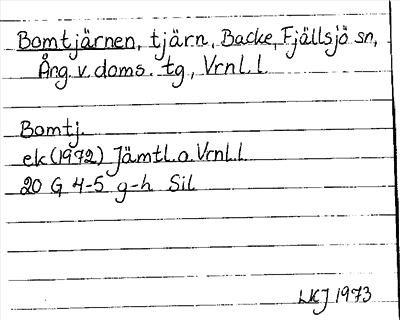 Bomtjärnen, tjärn, Backe, Fjällsjö sn,
Ång. v. doms. tg, Vrnl. l.
Bomtj.
ek (1972) Jämtl. o. Vrnl. l.
20 G 4-5 g-h Sil
LKJ 1973